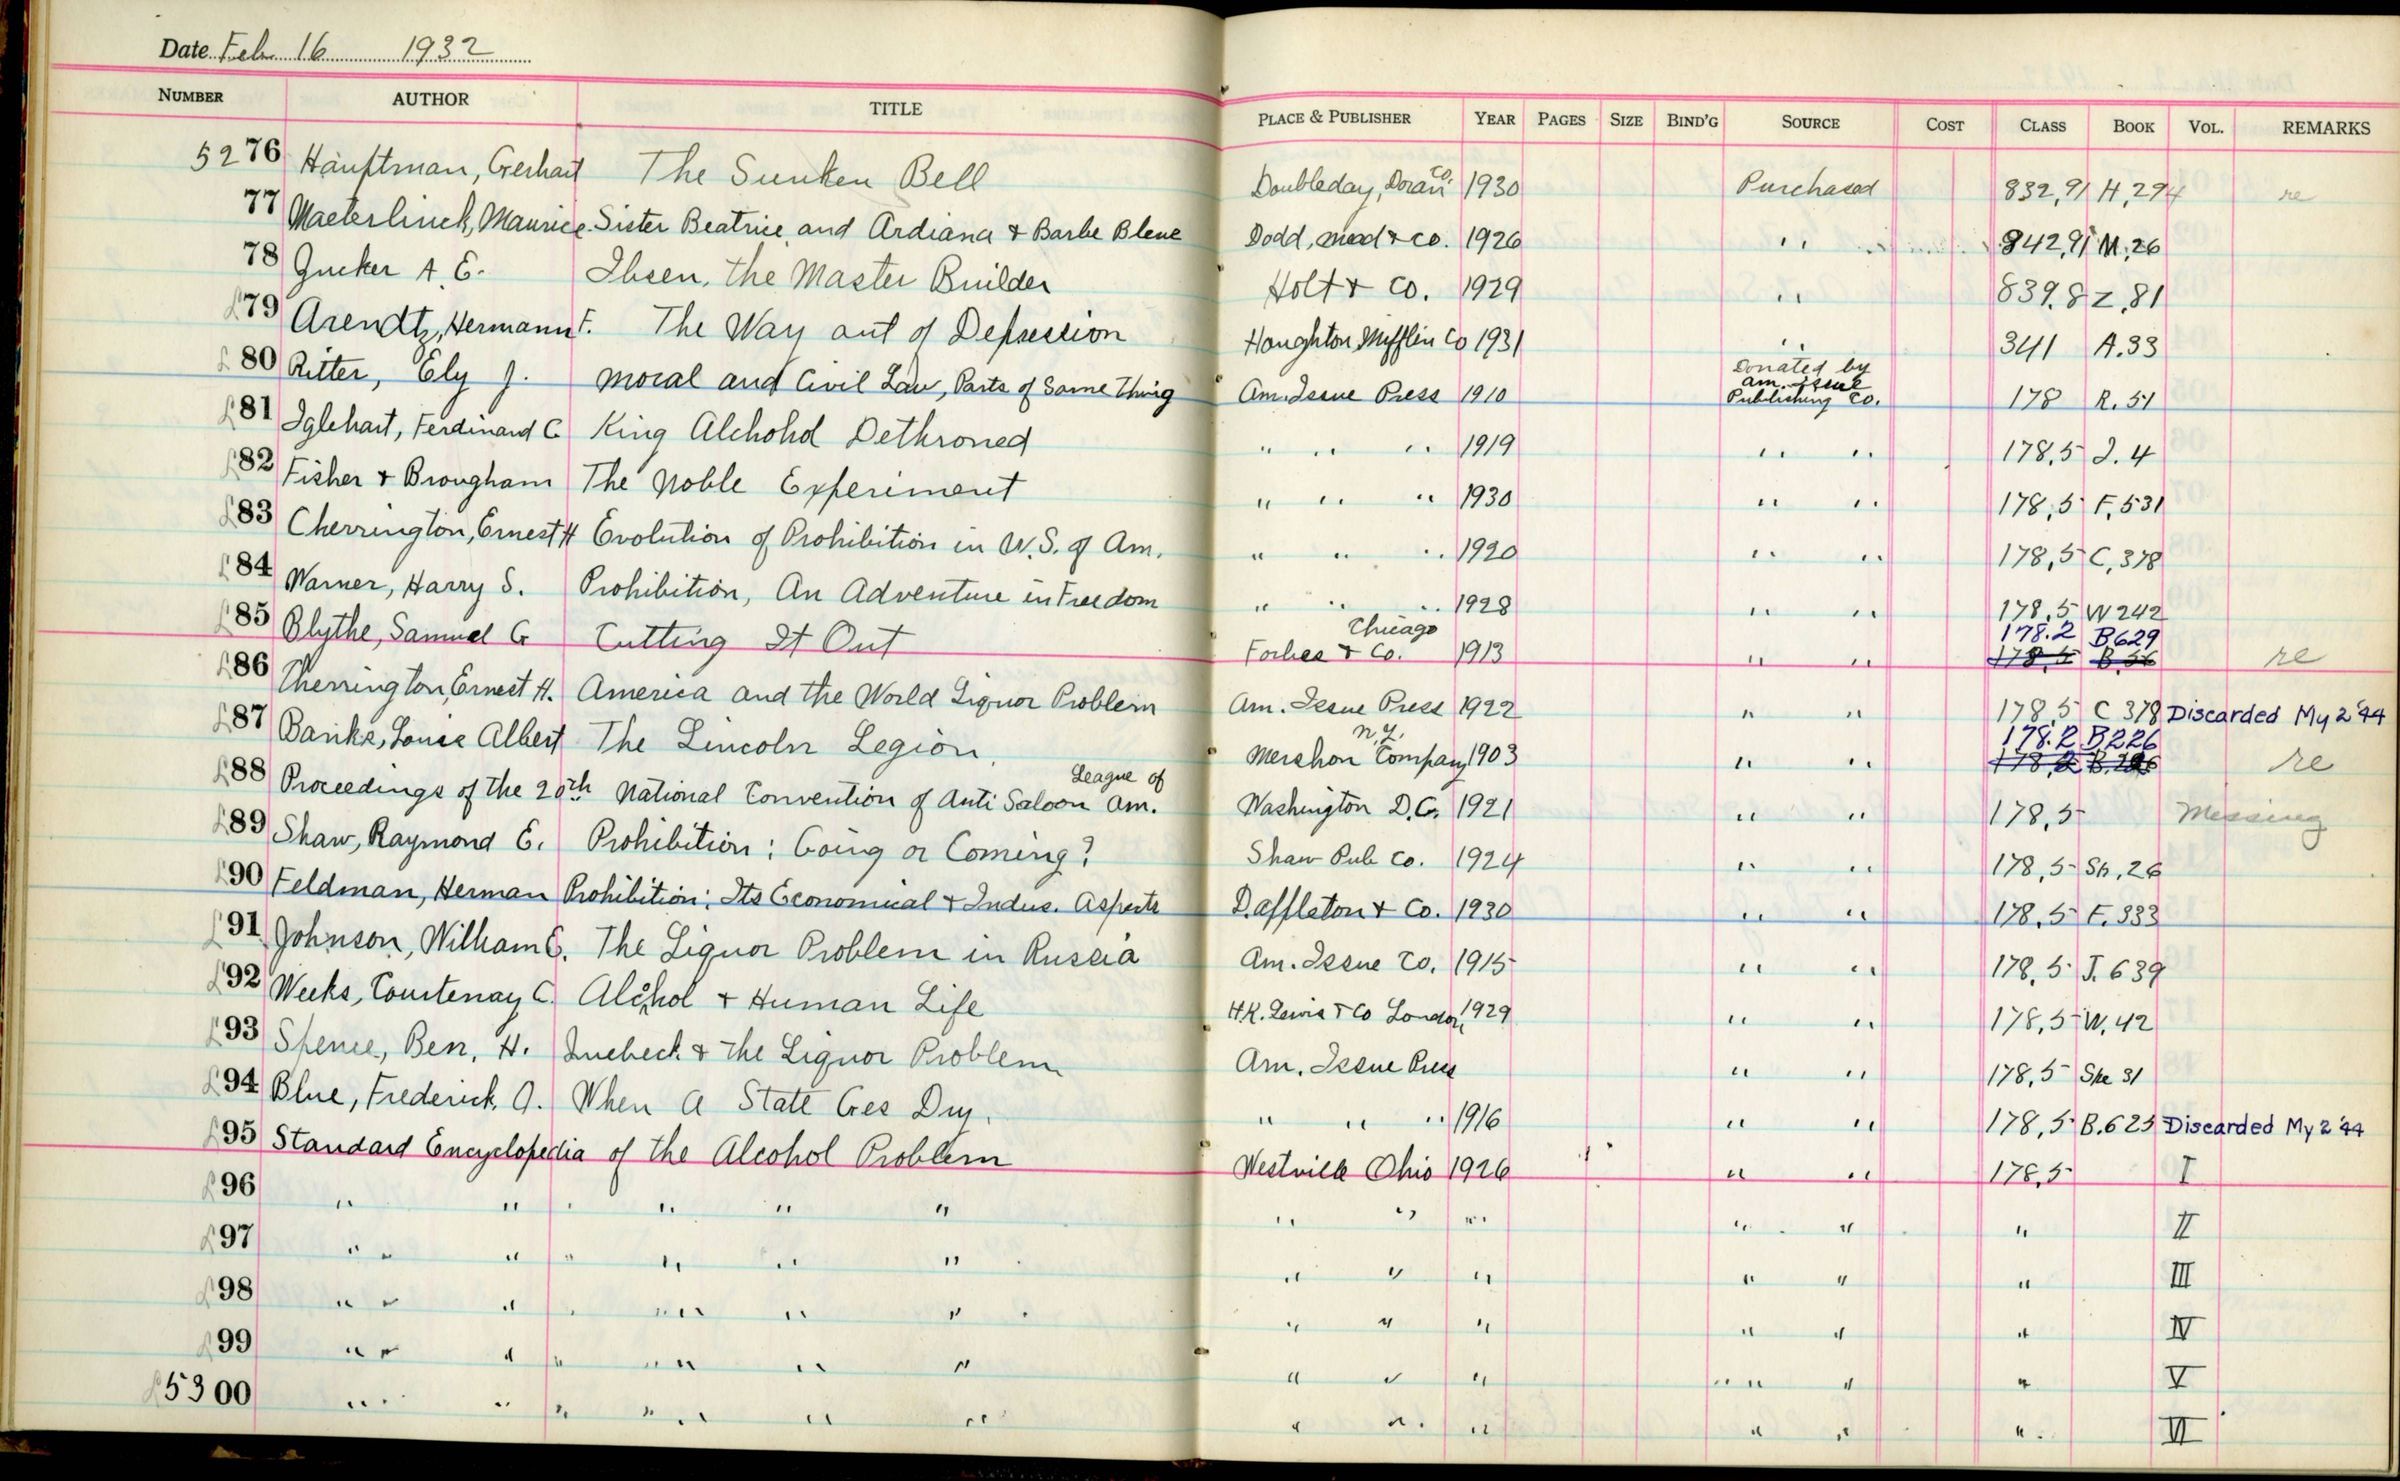 Date Feb 16 1932
NUMBER AUTHOR TITLE PLACE & PUBLISHER YEAR PAGES SIZE BIND'G SOURCE COST CLASS BOOK VOL. REMARKS
5276 Hauptman, Gerhart The Sunken Bell Doubleday, Doran Co. 1930 Purchased 832,91 H,294 re
77 Maeterlinck, Maurice Sister Beatrice and Ardiana & Barbe Bleue Dodd, Mead & Co. 1926 " 842,91 M,26
78 Zucker A. E. Ibsen, the Master Builder Holt & Co. 1929 " 839.8 Z,81
79 Arendtz, Hermann F. The Way out of Depression Houghton Mifflin Co 1931 " 341 A.33
80 Ritter, Ely J. Moral and Civil Law, Parts of Same Thing Am. Issue Press 1910 Donated by Am. Issue Publishing Co. 178 R.51
81 Iglehart, Ferdinand C King Alchohol Dethroned " " " 1919 " " 178,5 I.4
82 Fisher & Brougham The Noble Experiment " " " 1930 " " 178,5 F,531
83 Cherrington, Ernest H Evolution of Prohibition in U.S. of Am. " " " 1920 " " 178,5 C,378
84 Warner, Harry S. Prohibition, An Adventure in Freedom " " " 1928 " " 178,5 W242
85 Blythe, Samuel G Cutting It Out Forbes & Co. Chicago 1913 " " 178.2 B629 re
178,5 B,56
86 Cherrington, Ernest H. America and the World Liquor Problem Am. Issue Press 1922 " " 178,5 C 378 Discarded My 2 '44
87 Banks, Louis Albert The Lincoln Legion Mershon Company N.Y. 1903 " " 178.2 B226 re
88 Proceedings of the 20th National Convention of Anti Saloon League of Am. Washington D.C. 1921 " " 178,5 Missing
89 Shaw, Raymond E. Prohibition: Going or Coming? Shaw Pub Co. 1924 " " 178,5 Sh,26
90 Feldman, Herman Prohibition; Its Economical & Indus. Aspects D. Appleton & Co. 1930 " " 178,5 F.333
91 Johnson, William E. The Liquor Problem in Russia Am. Issue Co. 1915 " " 178,5 J.639
92 Weeks, Courtenay C. Alcohol & Human Life H.K. Lewis & Co London, 1929 " " 178,5 W,42
93 Spence, Ben, H. Quebeck & the Liquor Problem Am. Issue Press " " 178,5 Spe 31
94 Blue, Frederick O. When a State Goes Dry. " " " 1916 " " 178,5 B.625 Discarded My 2 '44
95 Standard Encyclopedia of the Alcohol Problem Westville Ohio 1926 " " 178,5 I
96 " " " " " " " " " " " " II
97 " " " " " " " " " " " " III
98 " " " " " " " " " " " " IV
99 " " " " " " " " " " " " V
5300 " " " " " " " " " " " " VI